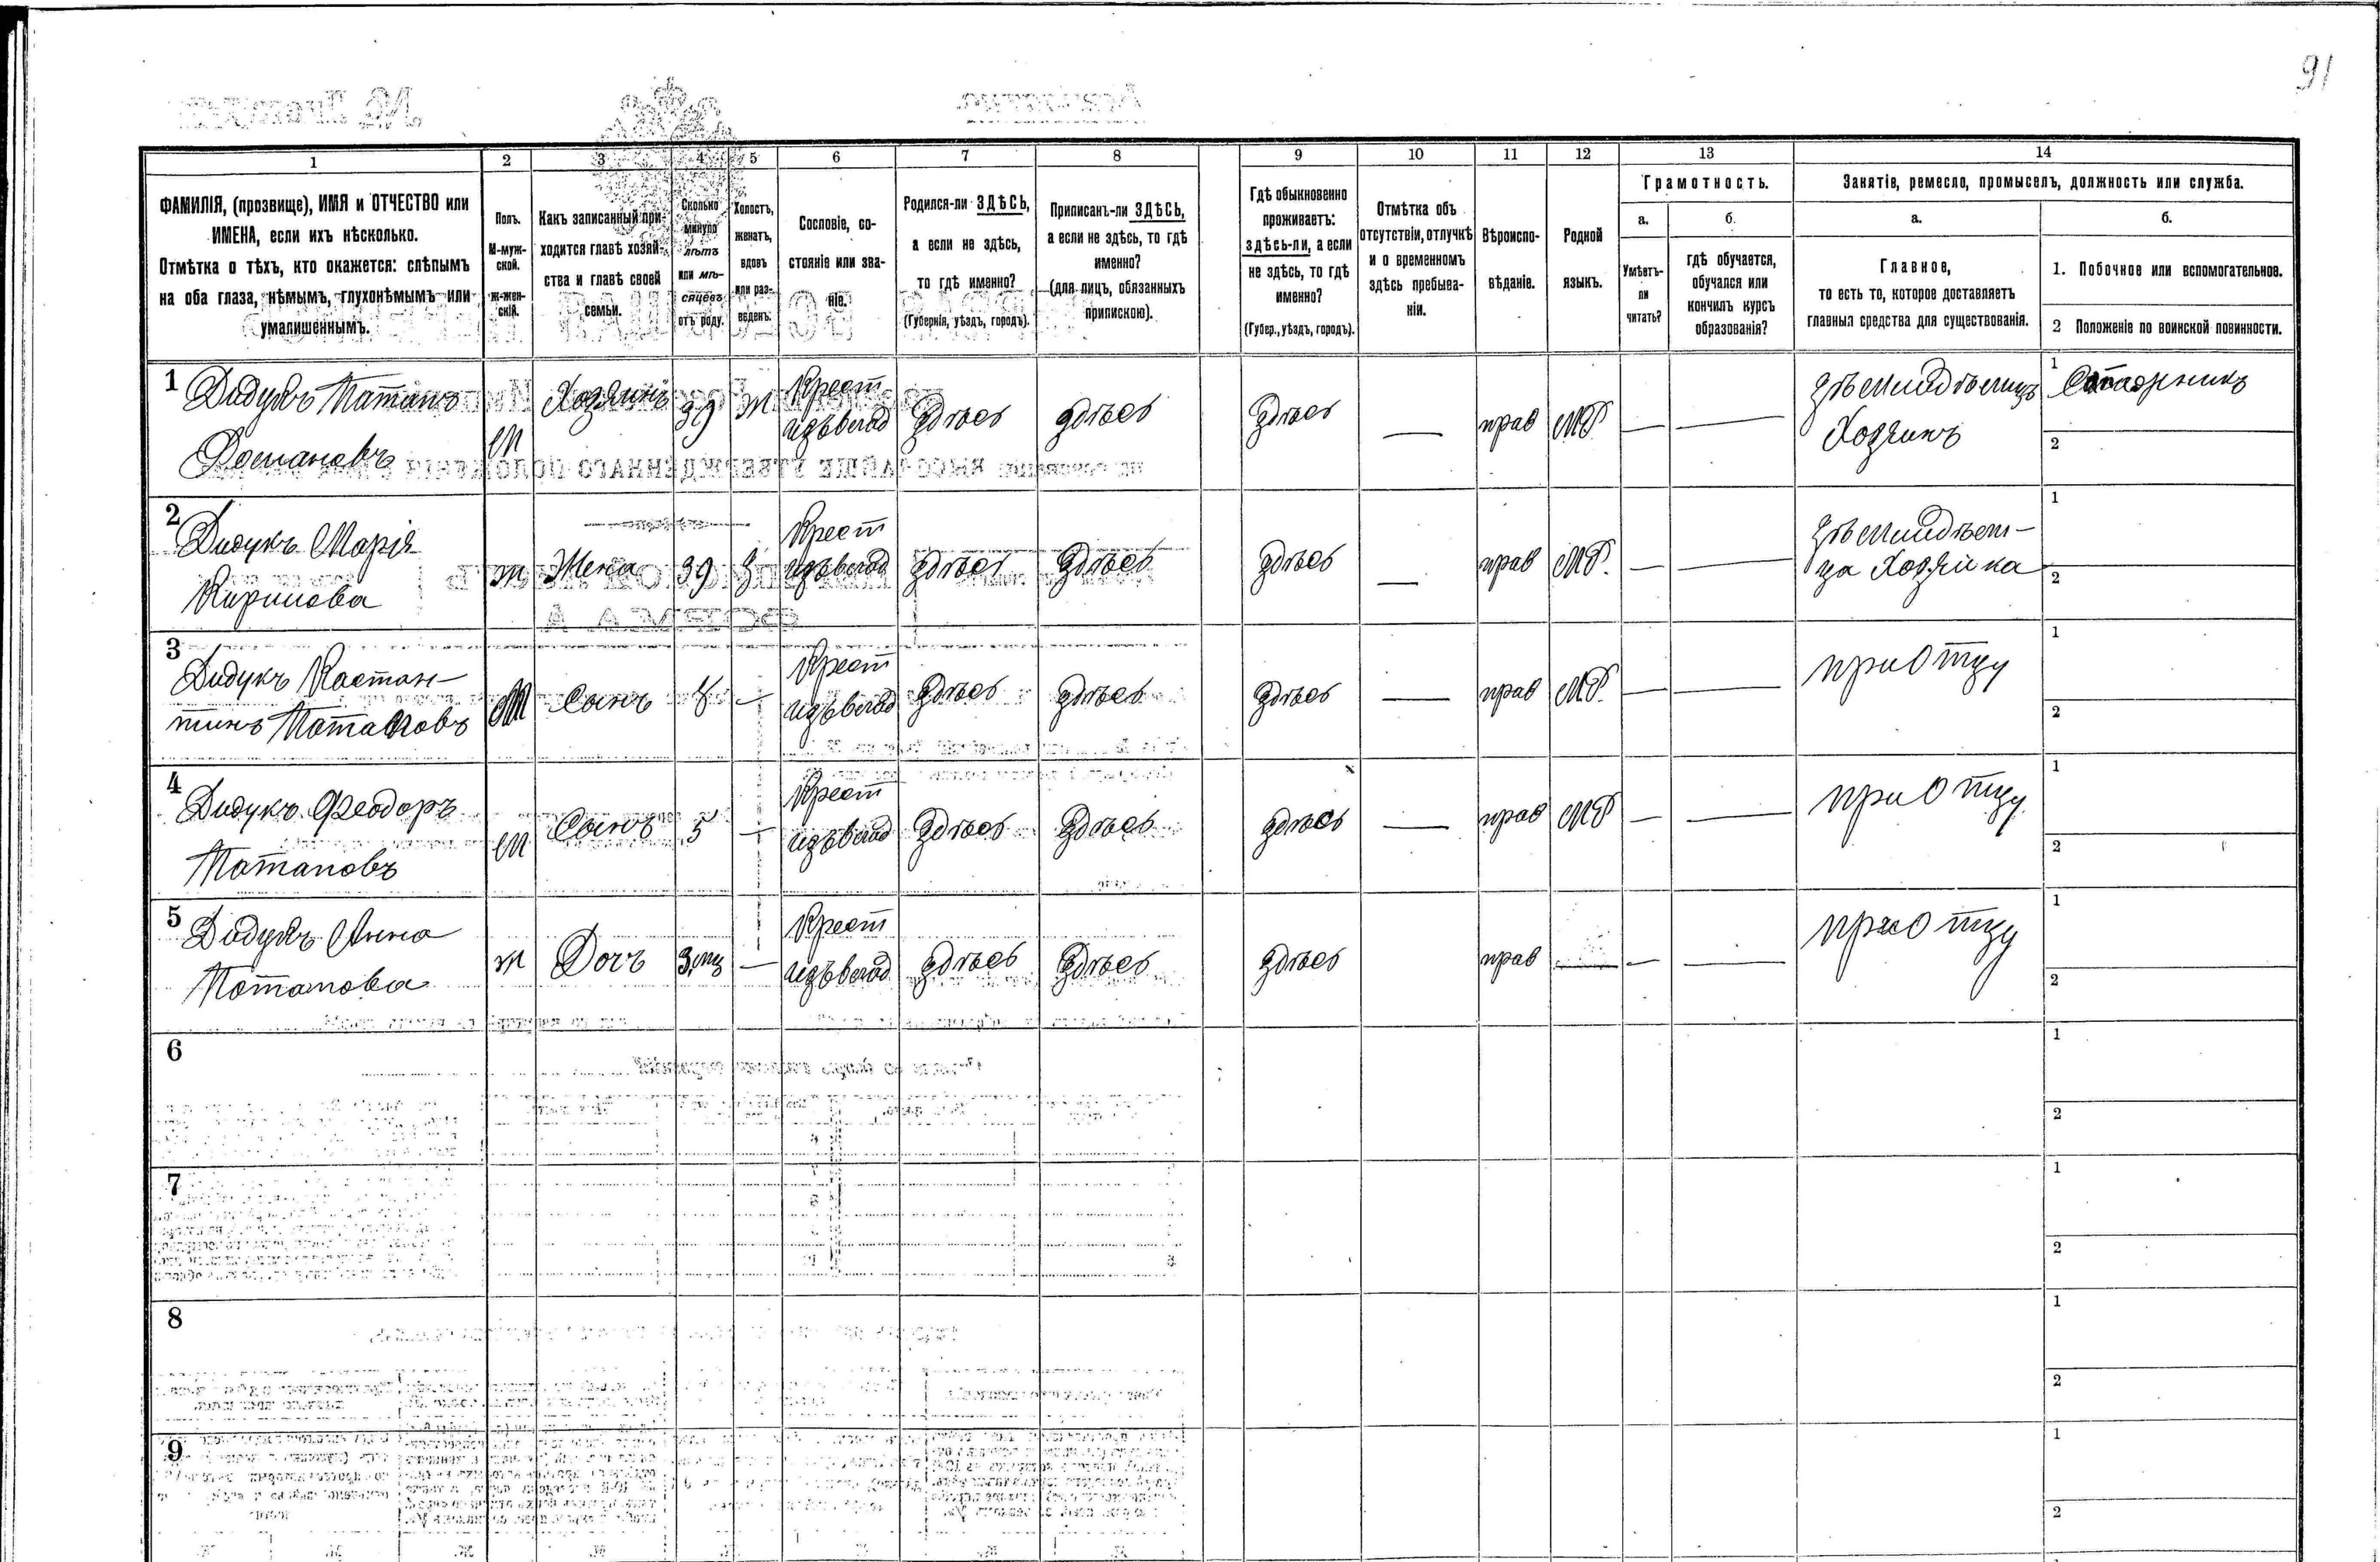 91
1 2 3 4 5 6 7 8 9 10 11 12 13 14
ФАМИЛІЯ, (прозвище), ИМЯ и ОТЧЕСТВО или
ИМЕНА, если ихъ нѣсколько.
Отмѣтка о тѣхъ, кто окажется: слѣпымъ
на оба глаза, нѣмымъ, глухонѣмымъ или
умалишеннымъ.
Полъ.
М-муж-
ской.
Ж-жен-
скій.
Какъ записанный при-
ходится главѣ хозяй-
ства и главѣ своей
семьи.
Сколько
минуло
лѣтъ
или мѣ-
сяцевъ
отъ роду.
Холостъ,
женатъ,
вдовъ
или раз-
веденъ.
Сословіе, со-
стояніе или зва-
ніе.
Родился-ли ЗДѢСЬ,
а если не здѣсь,
то гдѣ именно?
(Губернія, уѣздъ, городъ).
Приписанъ-ли ЗДѢСЬ,
а если не здѣсь, то гдѣ
именно?
(для лицъ, обязанныхъ
припискою).
Гдѣ обыкновенно
проживаетъ:
здѣсь-ли, а если
не здѣсь, то гдѣ
именно?
(Губер., уѣздъ, городъ).
Отмѣтка объ
отсутствіи, отлучкѣ
и о временномъ
здѣсь пребыва-
ніи.
Вѣроиспо-
вѣданіе.
Родной
языкъ.
Грамотность.
а.
Умѣетъ-
ли
читать?
б.
гдѣ обучается,
обучался или
кончилъ курсъ
образованія?
Занятіе, ремесло, промыселъ, должность или служба.
а.
Главное,
то есть то, которое доставляетъ
главныя средства для существованія.
б.
1. Побочное или вспомогательное.
2 Положеніе по воинской повинности.
1 Дидукъ Потапъ
Романовъ
м Хозяинъ 39 ж Крест
изъ влад здѣсь здѣсь здѣсь — прав МР — —
Землидѣлицъ
Хозяинъ
1
2
2 Дидукъ Марія
Кирилова
ж Жена 39 З Крест
изъ влад здѣсь здѣсь здѣсь — прав МР. — —
Землидѣли-
ца Хозяйка
1
2
3 Дидукъ Костан-
тинъ Потаповъ
М Сынъ 8 — Крест
изъ влад здѣсь здѣсь здѣсь — прав МР. — —
при Отцу
1
2
4 Дидукъ Феодоръ
Потаповъ
м Сынъ 5 — Крест
изъ влад здѣсь здѣсь здѣсь — прав МР — —
при Отцу
1
2
5 Дидукъ Анна
Потапова
ж Дочъ 3 мц — Крест
изъ влад здѣсь здѣсь здѣсь прав — — —
при Отцу
1
2
6
1
2
7
1
2
8
1
2
9
1
2